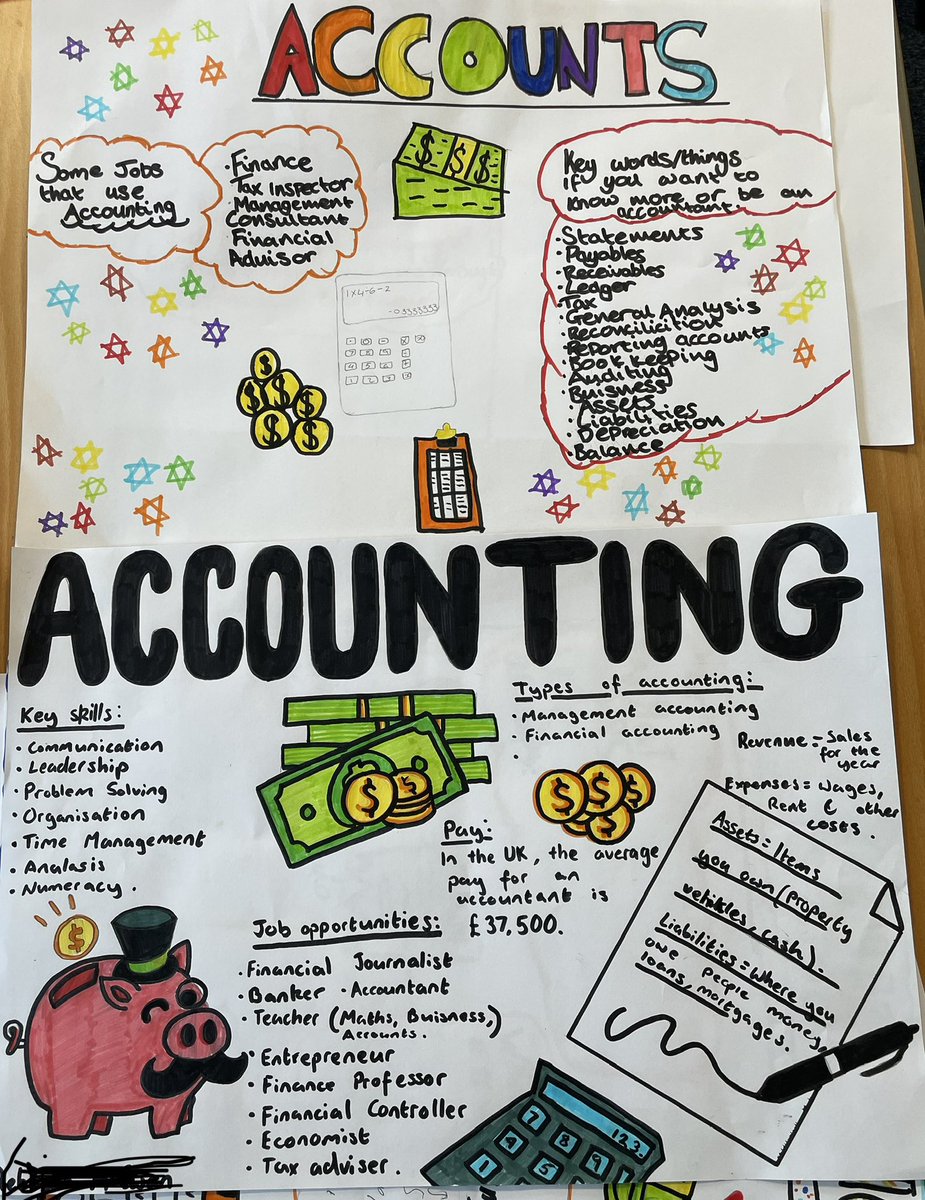 ACCOUNTS
Some Jobs
that use
Accounting
·Finance
·Tax Inspector
·Management
Consultant
·Financial
Advisor
Key words/things
if you want to
know more or be an
accountant.
·Statements
·Payables
·Receivables
·Ledger
·Tax
·General Analysis
·Reconcilicition
·Reporting accounts
·Book keeping
·Auditing
·Buisness
·Assets
·Liabilities
·Depreciation
·Balance
$ $ $
1x4-6-2
-0.3333333
$
$ $ $
$ $
ACCOUNTING
Key skills:
·Communication
·Leadership
·Problem Solving
·Organisation
·Time Management
·Analasis
·Numeracy.
Types of accounting:
·Management accounting
·Financial accounting
·
Revenue = Sales
for the
year
Expenses = Wages,
Rent & other
costs.
$ $
$ $ $
$ $
Pay:
In the UK, the average
pay for an
accountant is
£37,500.
Assets = Items
you own (property
vehicles, cash).
Liabilities = Where you
owe people money,
loans, mortgages.
$
Job opportunities:
·Financial Journalist
·Banker ·Accountant
·Teacher (Maths, Buisness,)
Accounts.
·Entrepreneur
·Finance Professor
·Financial Controller
·Economist
·Tax adviser.
123.
7 8 9
4 5
1